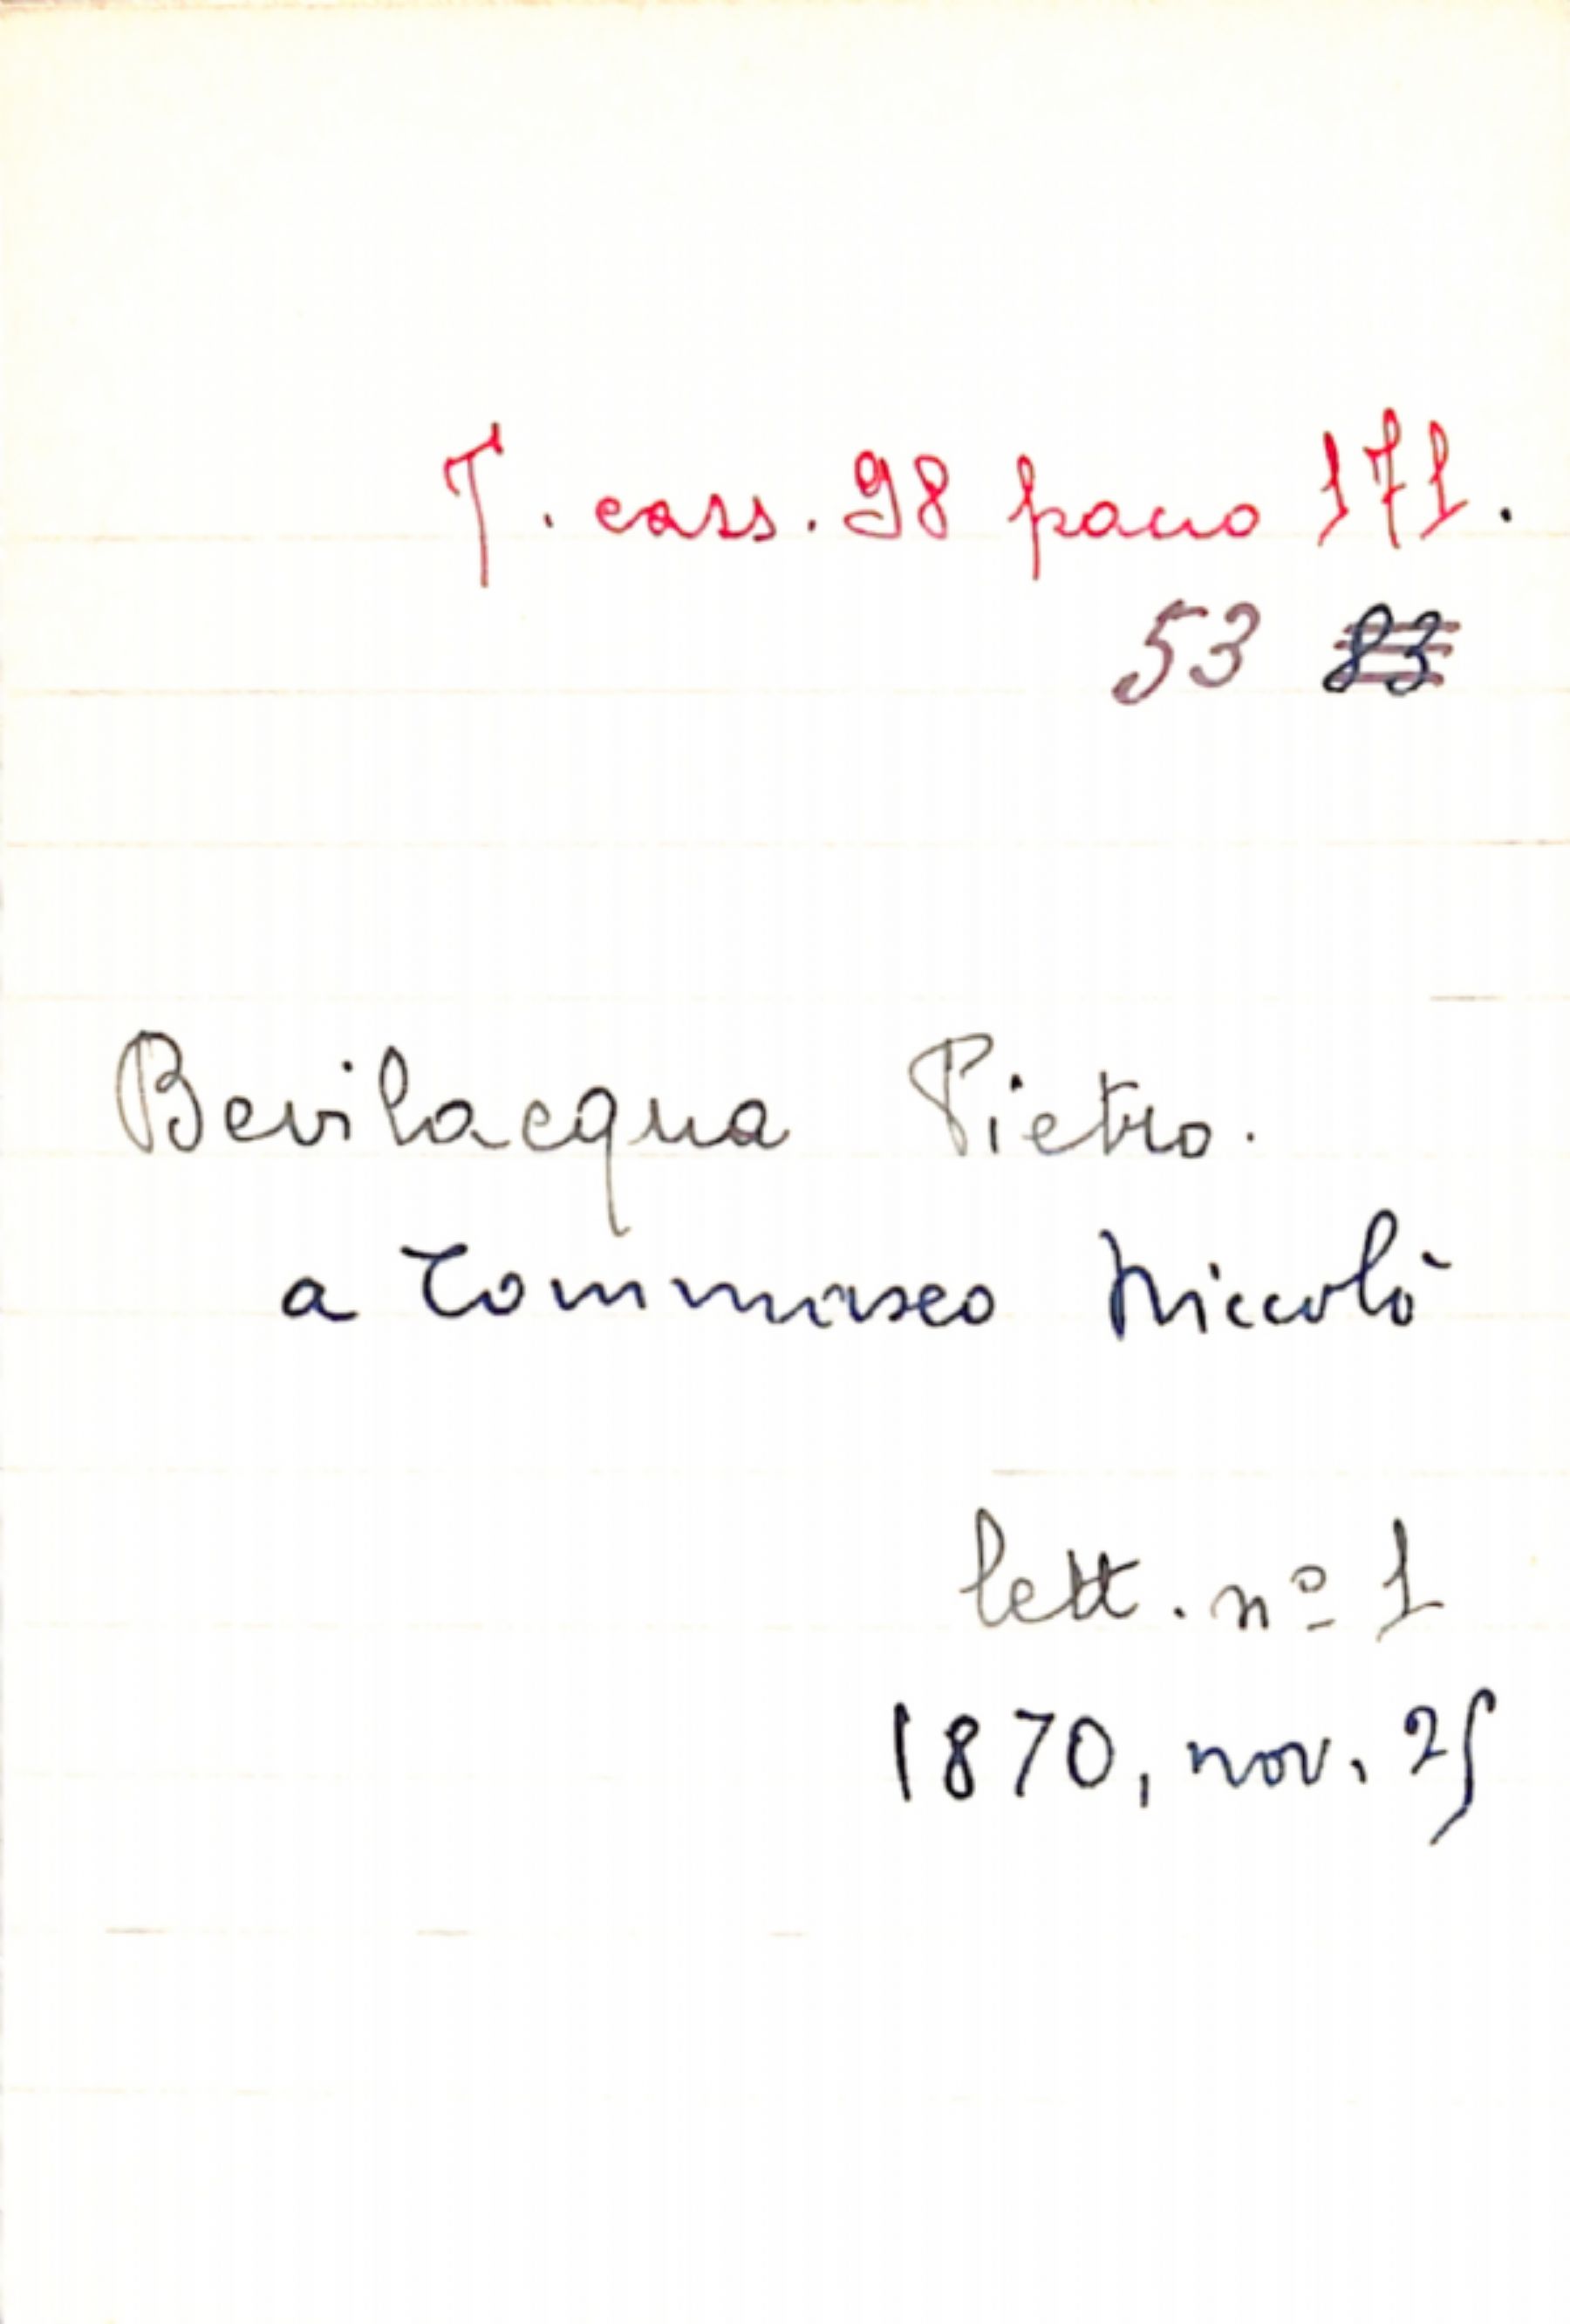 T. cass. 98 pacco 171.
53 83
Bevilacqua Pietro.
a Tommaseo Niccolò
lett. nº 1
1870, nov. 25